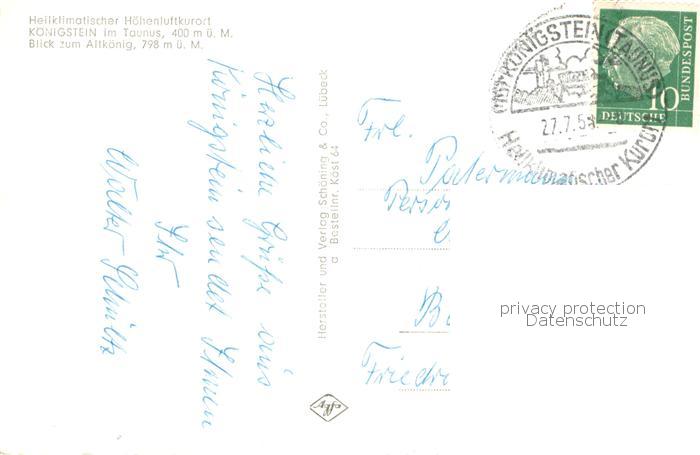 Heilklimatischer Höhenluftkurort
KÖNIGSTEIN im Taunus, 400 m ü. M.
Blick zum Altkönig, 798 m ü. M.
Herzliche Grüße aus
Königstein sendet Ihnen
Ihr
Walter Schultz
Hersteller und Verlag Schöning & Co., Lübeck
a Bestellnr. Köst 64
Frl.
Friedr
Agfa
KÖNIGSTEIN (TAUNUS)
27.7.5
Heilklimatischer Kurort
10
DEUTSCHE
BUNDESPOST
privacy protection
Datenschutz